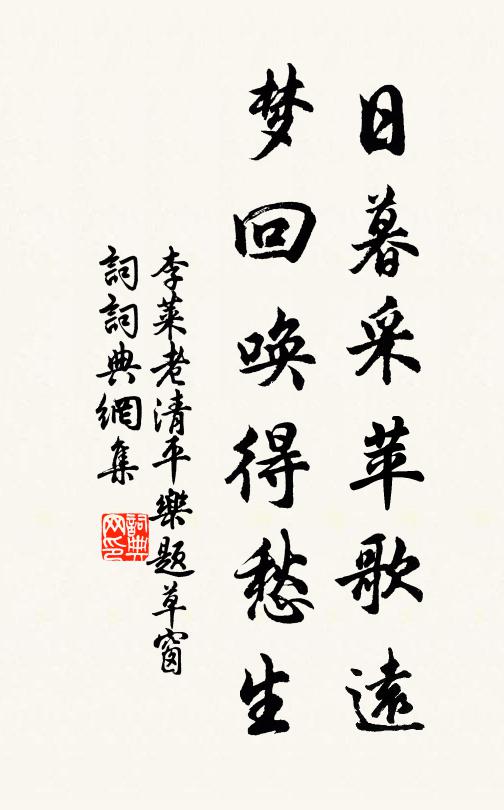 日暮采苹歌遠
梦回唤得愁生
李莱老清平樂题草窗
詞詞典網集
詞典网印